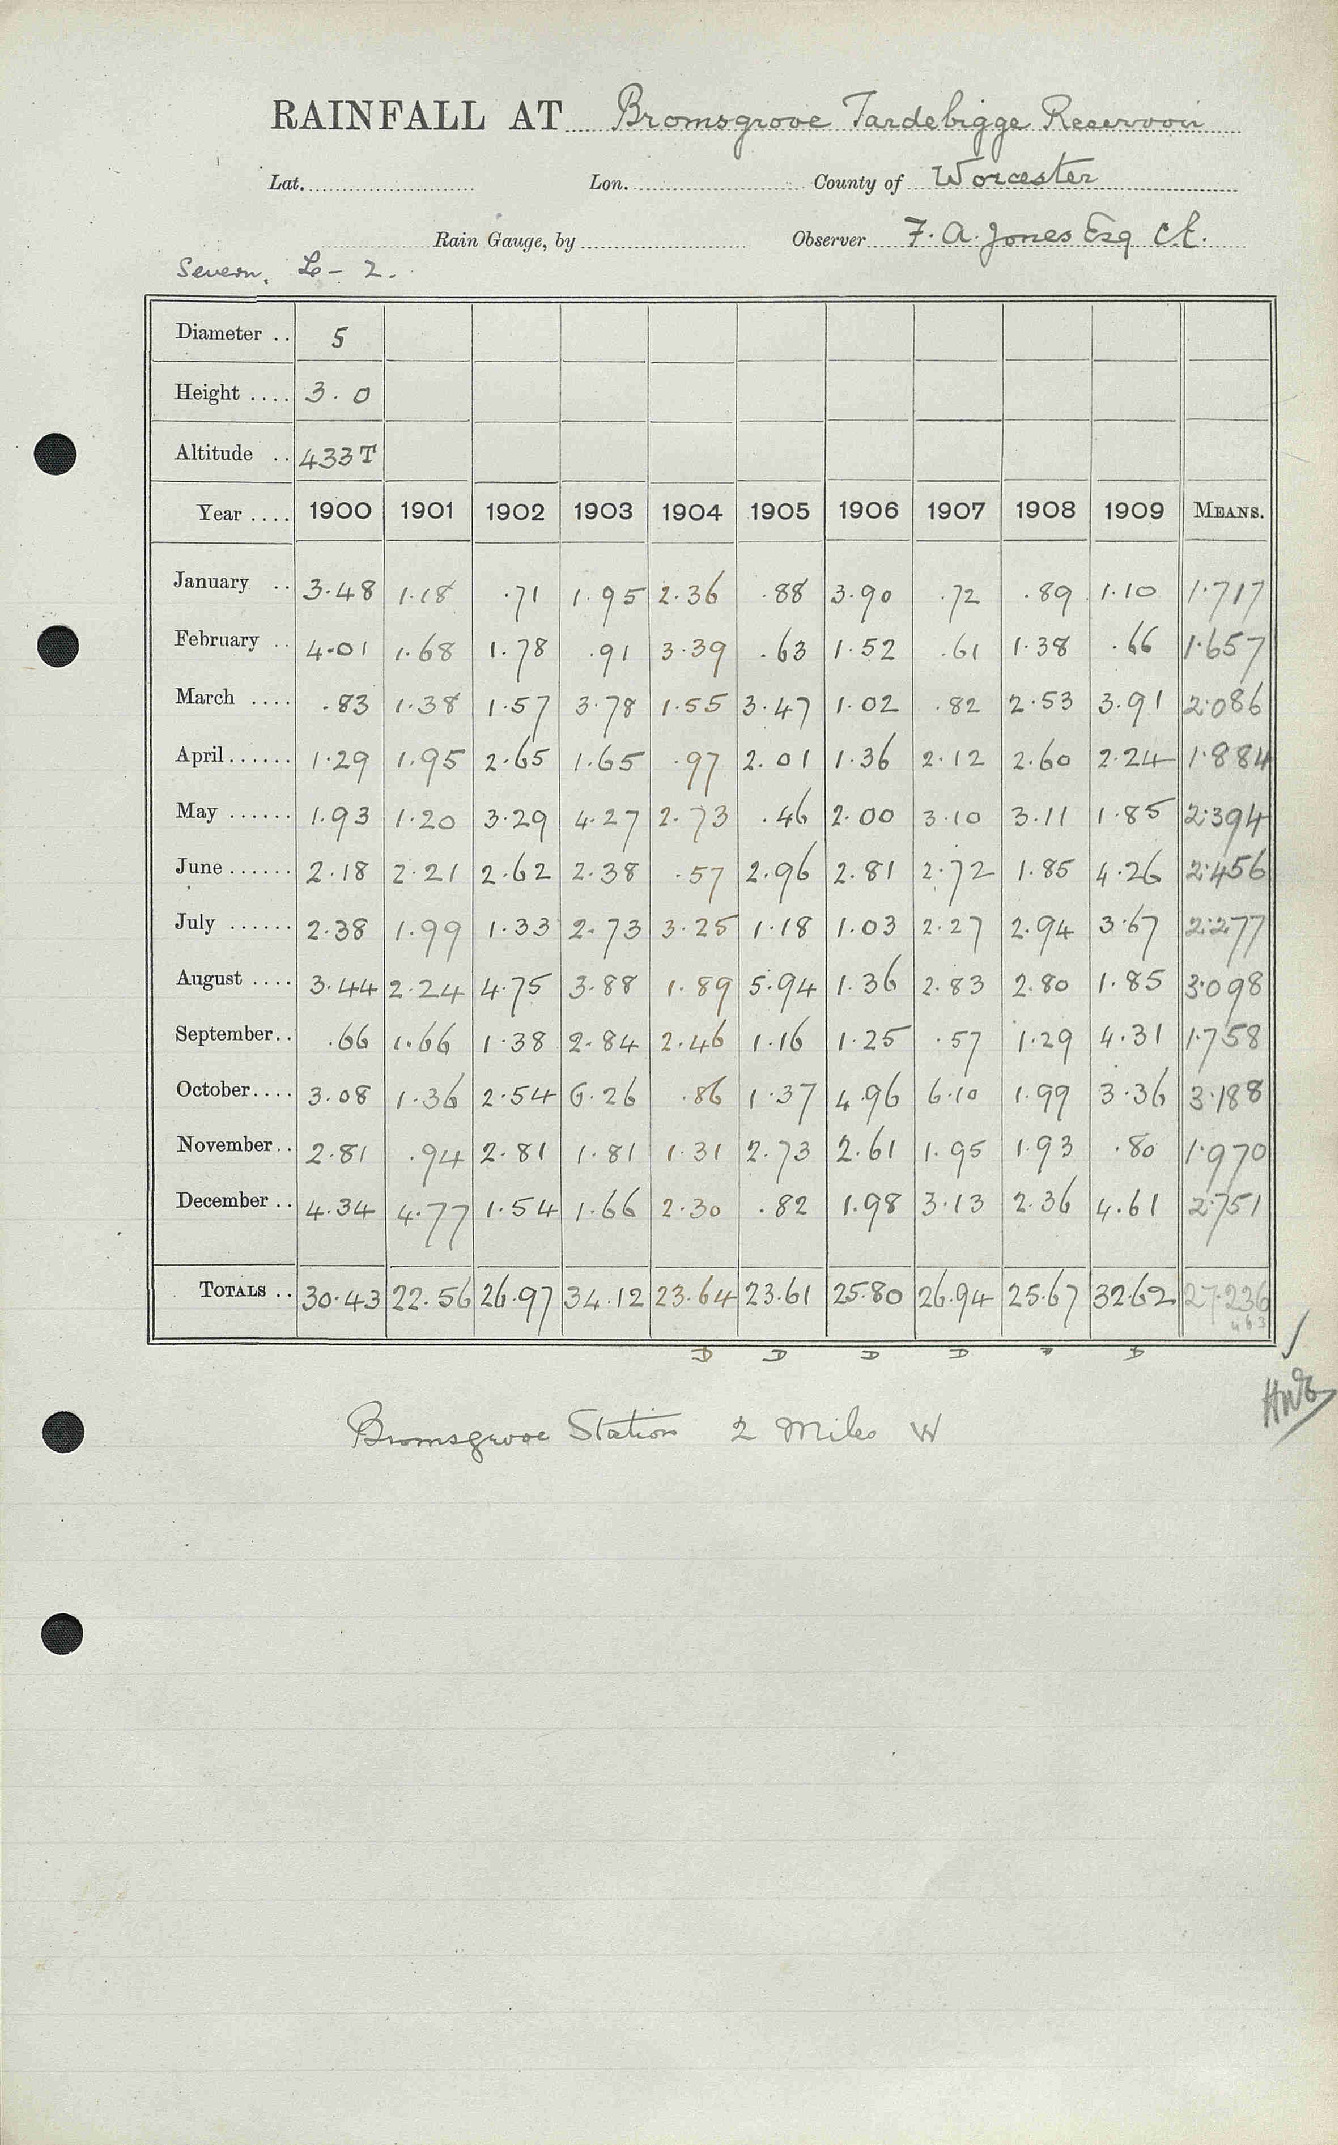 RAINFALL AT Bromsgrove Tardebigge Reservoir
Lat. Lon. County of Worcester
Rain Gauge, by Observer F. A. Jones Esq C.E.
Severn. L - 2.
Diameter .. 5
Height .... 3.0
Altitude .. 433 T
Year .... 1900 1901 1902 1903 1904 1905 1906 1907 1908 1909 MEANS.
January .. 3.48 1.18 .71 1.95 2.36 .88 3.90 .72 .89 1.10 1.717
February .. 4.01 1.68 1.78 .91 3.39 .63 1.52 .61 1.38 .66 1.657
March .... .83 1.38 1.57 3.78 1.55 3.47 1.02 .82 2.53 3.91 2.086
April...... 1.29 1.95 2.65 1.65 .97 2.01 1.36 2.12 2.60 2.24 1.884
May ...... 1.93 1.20 3.29 4.27 2.73 .46 2.00 3.10 3.11 1.85 2.394
June...... 2.18 2.21 2.62 2.38 .57 2.96 2.81 2.72 1.85 4.26 2.456
July ...... 2.38 1.99 1.33 2.73 3.25 1.18 1.03 2.27 2.94 3.67 2.277
August .... 3.44 2.24 4.75 3.88 1.89 5.94 1.36 2.83 2.80 1.85 3.098
September.. .66 1.66 1.38 2.84 2.46 1.16 1.25 .57 1.29 4.31 1.758
October.... 3.08 1.36 2.54 6.26 .86 1.37 4.96 6.10 1.99 3.36 3.188
November.. 2.81 .94 2.81 1.81 1.31 2.73 2.61 1.95 1.93 .80 1.970
December .. 4.34 4.77 1.54 1.66 2.30 .82 1.98 3.13 2.36 4.61 2.751
TOTALS .. 30.43 22.56 26.97 34.12 23.64 23.61 25.80 26.94 25.67 32.62 27.236
D D D D D
Bromsgrove Station 2 Miles W